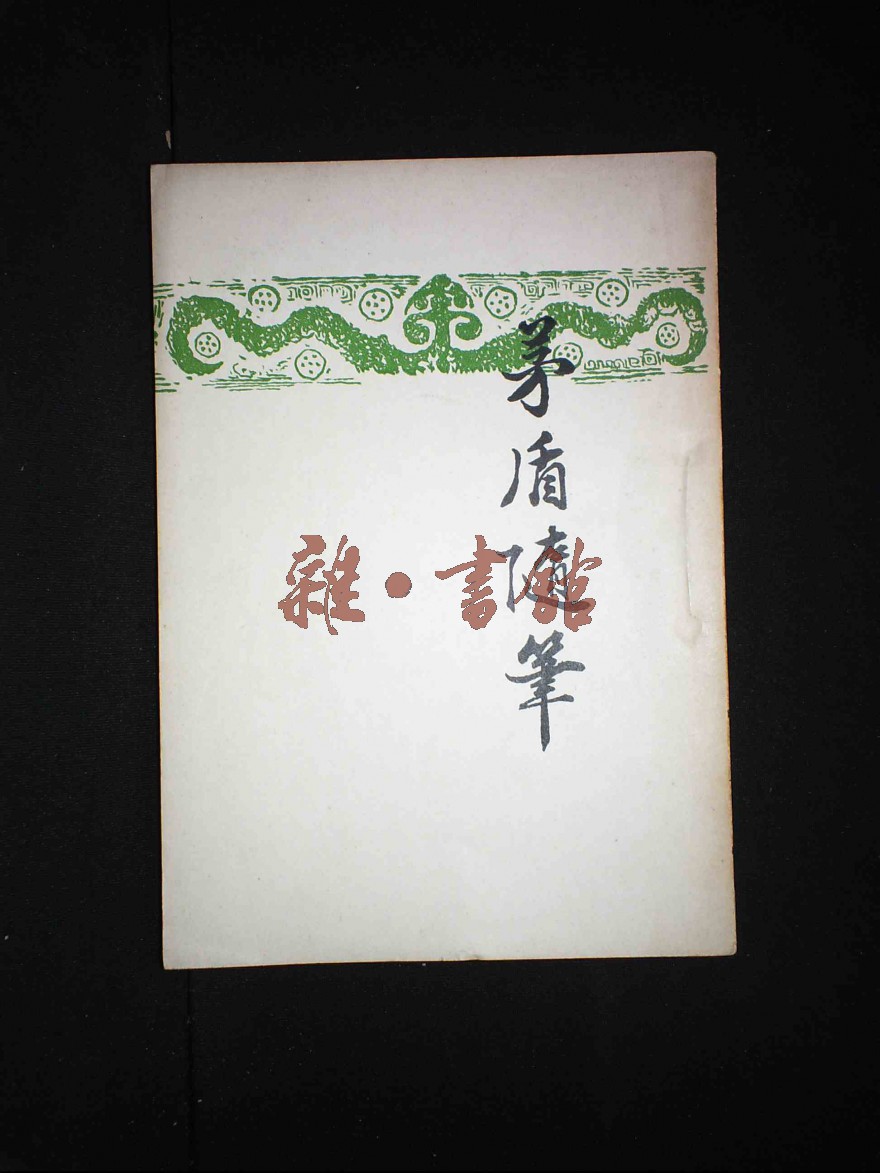 茅盾隨筆
雜·書館